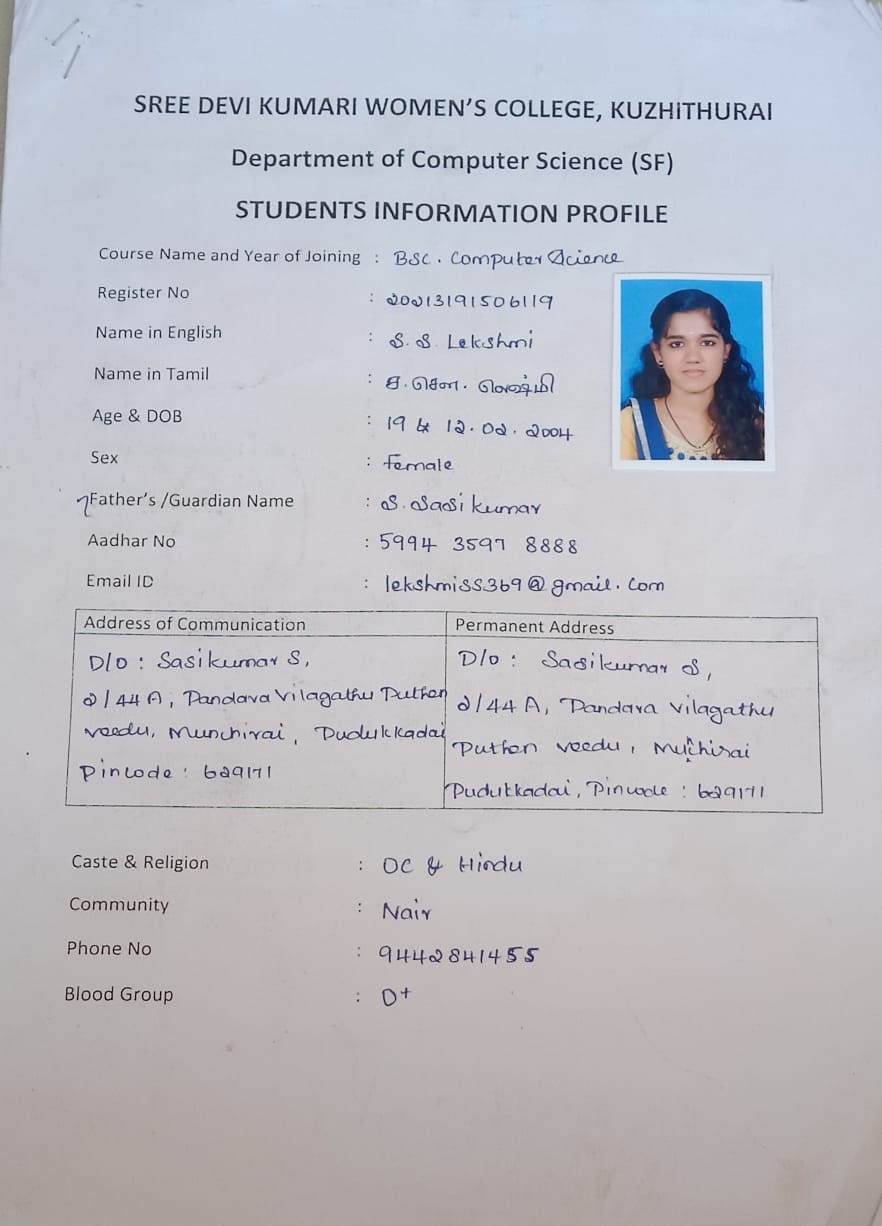 SREE DEVI KUMARI WOMEN'S COLLEGE, KUZHITHURAI
Department of Computer Science (SF)
STUDENTS INFORMATION PROFILE
Course Name and Year of Joining : BSC. Computer Science
Register No : 20213191506119
Name in English : S. S. Lekshmi
Name in Tamil : ச. செள.
Age & DOB : 19 & 12.02.2004
Sex : female
Father's /Guardian Name : S. Sasi kumar
Aadhar No : 5994 3597 8888
Email ID : lekshmiss369@gmail.com
Address of Communication
D/O : Sasikumar S,
2/44 A, Pandara Vilagathu Puthen
veedu, Munchirai, Pudukkadai
Pincode : 629171
Permanent Address
D/O : Sasikumar S,
2/44 A, Pandara Vilagathu
Puthen veedu, Munchirai
Pudukkadai, Pincode : 629171
Caste & Religion : OC & Hindu
Community : Nair
Phone No : 9442841455
Blood Group : O+